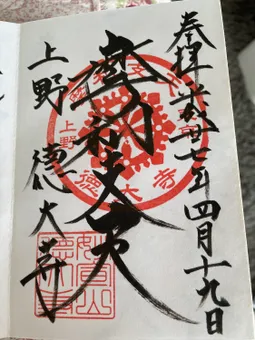 奉拝 平成廿七年四月十九日
摩利支天
上野 徳大寺
上野
徳大寺